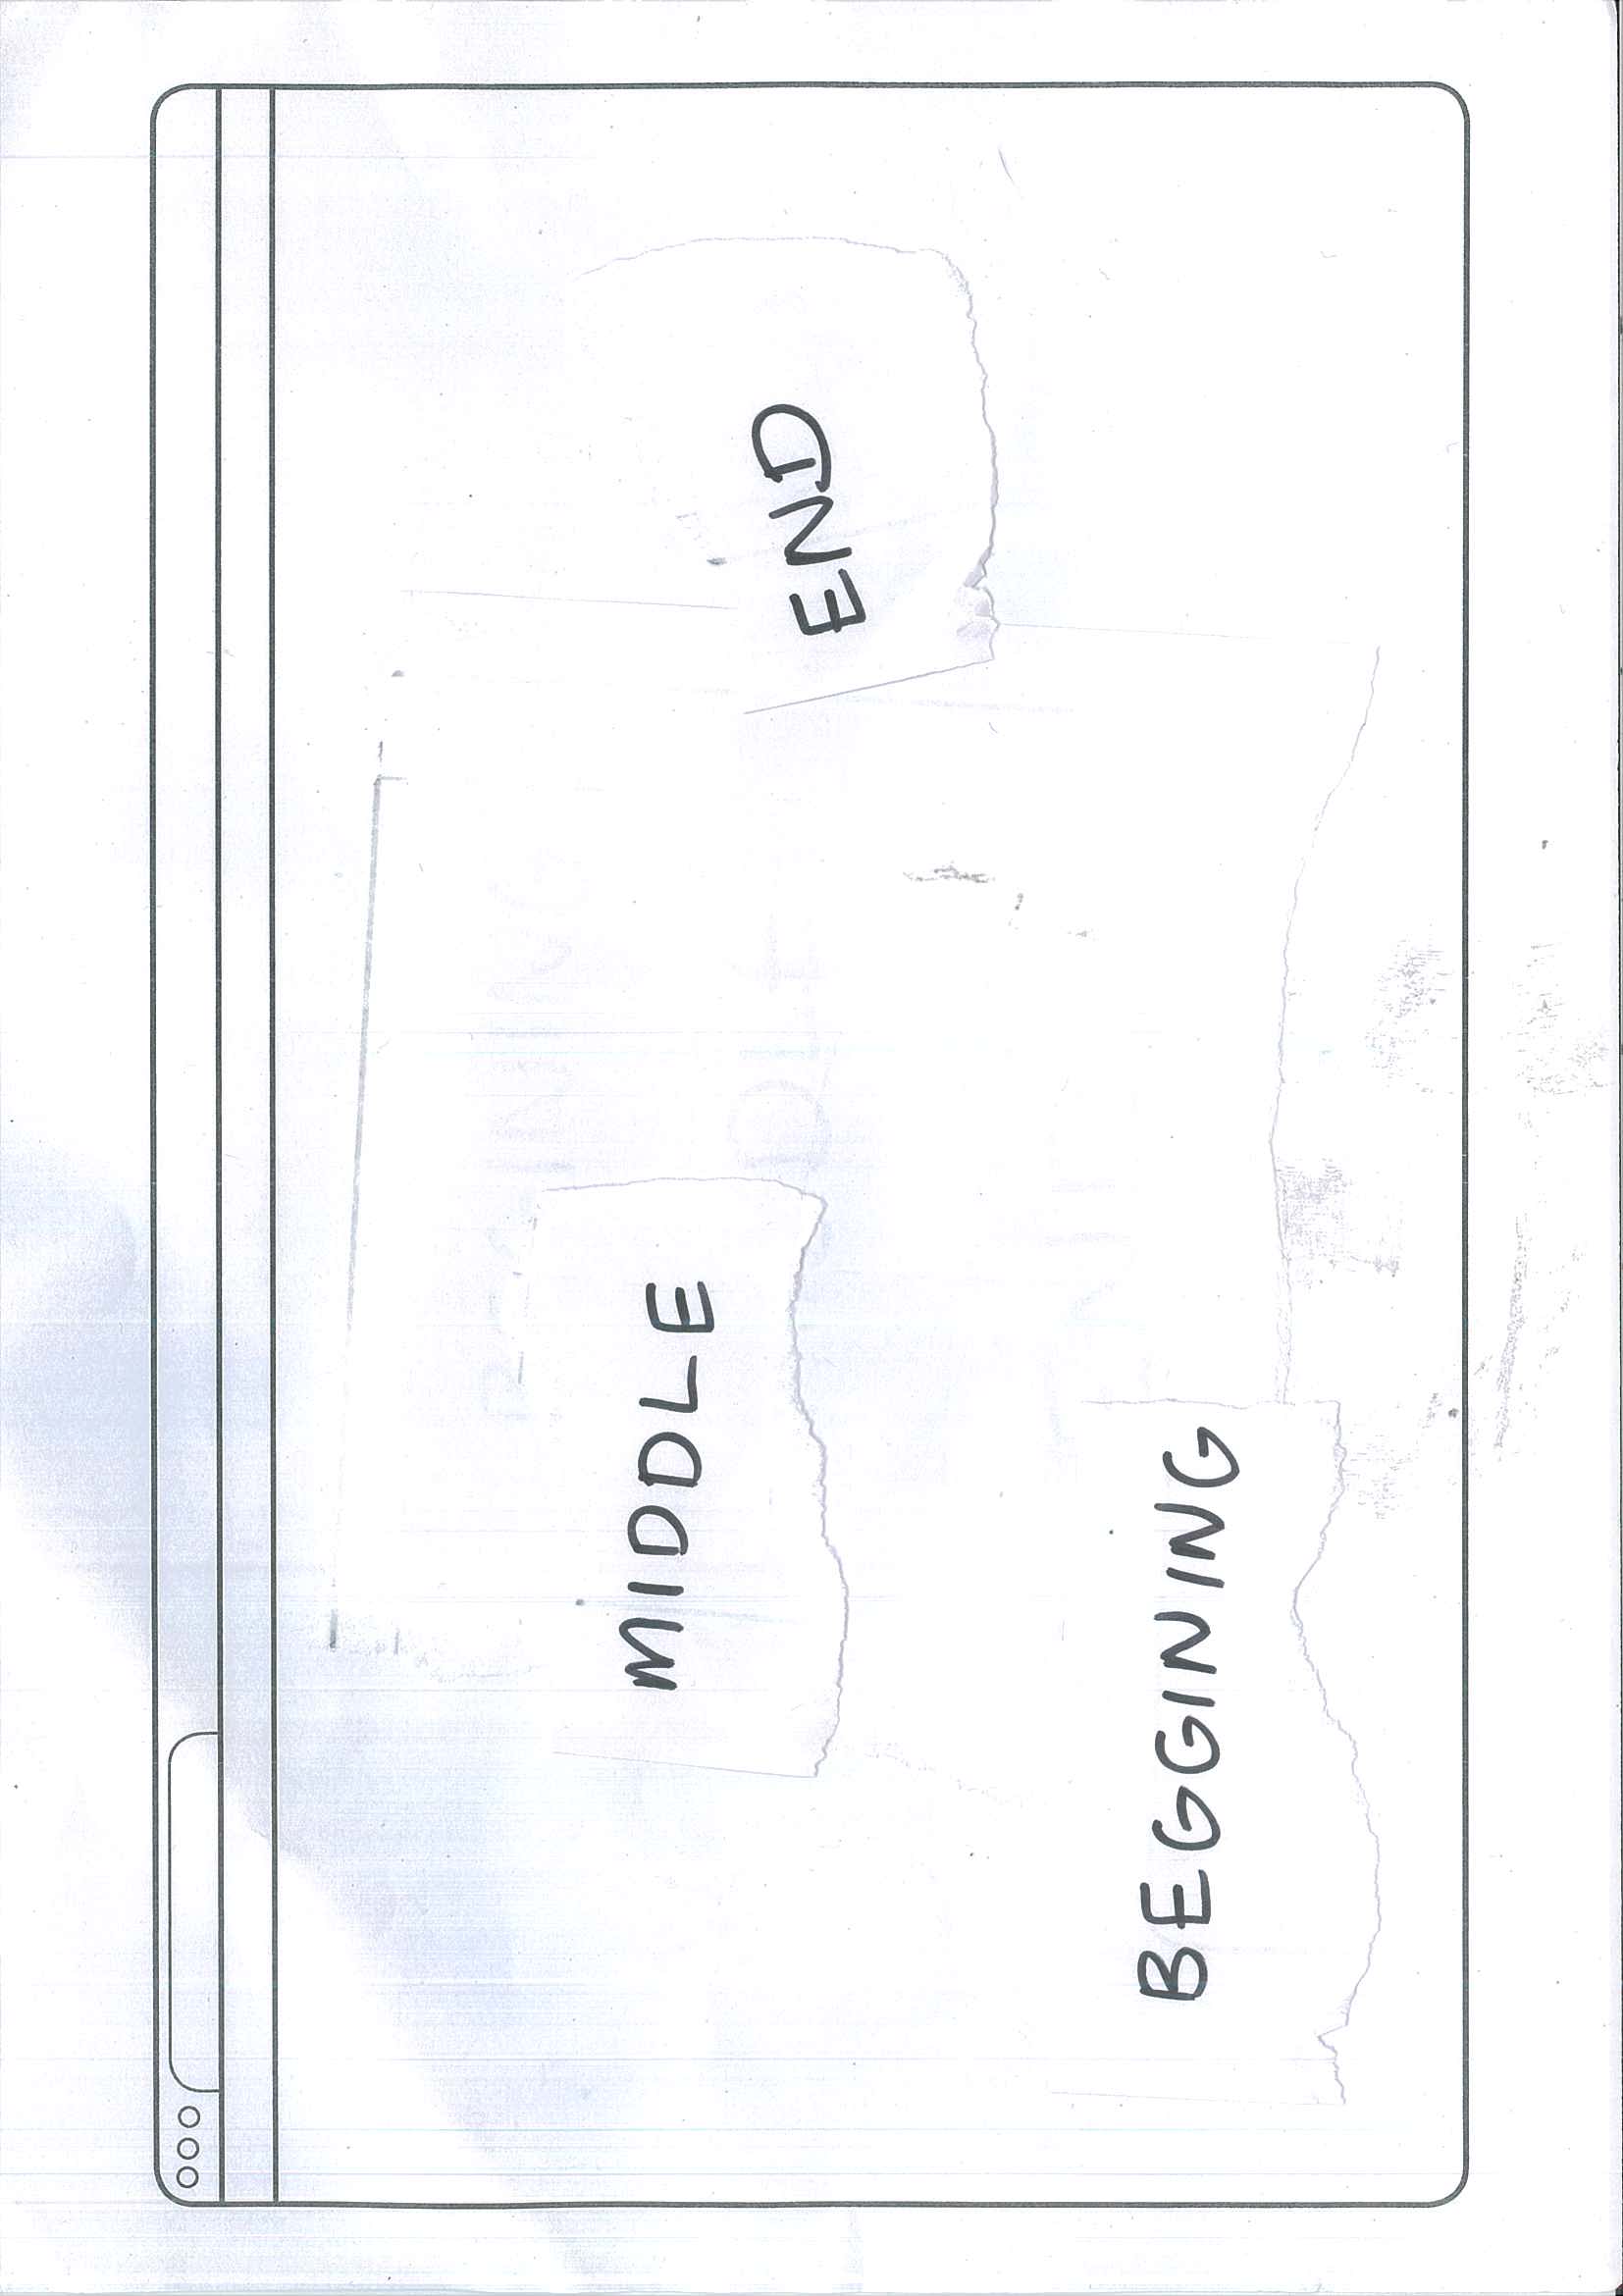 MIDDLE
END
BEGGINING